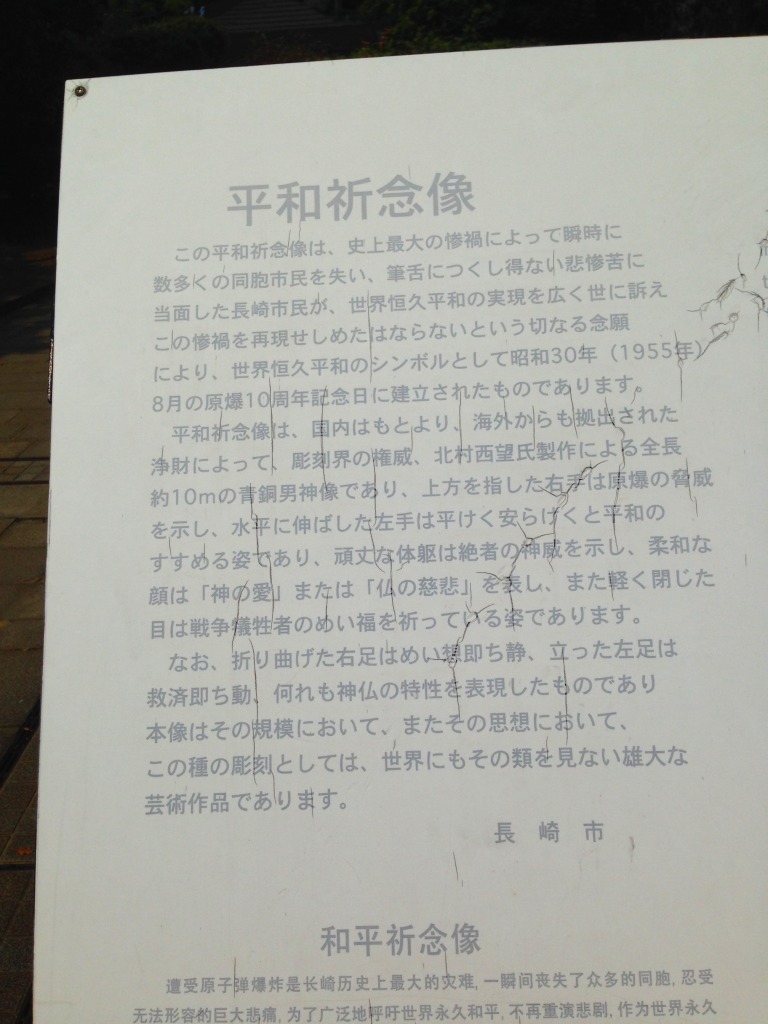 平和祈念像
この平和祈念像は、史上最大の惨禍によって瞬時に
数多くの同胞市民を失い、筆舌につくし得ない悲惨苦に
当面した長崎市民が、世界恒久平和の実現を広く世に訴え
この惨禍を再現せしめたはならないという切なる念願
により、世界恒久平和のシンボルとして昭和30年（1955年）
8月の原爆10周年記念日に建立されたものであります。
平和祈念像は、国内はもとより、海外からも拠出された
浄財によって、彫刻界の権威、北村西望氏製作による全長
約10mの青銅男神像であり、上方を指した右手は原爆の脅威
を示し、水平に伸ばした左手は平けく安らけくと平和の
すすめる姿であり、頑丈な体躯は絶者の神威を示し、柔和な
顔は「神の愛」または「仏の慈悲」を表し、また軽く閉じた
目は戦争犠牲者のめい福を祈っている姿であります。
なお、折り曲げた右足はめい想即ち静、立った左足は
救済即ち動、何れも神仏の特性を表現したものであり
本像はその規模において、またその思想において、
この種の彫刻としては、世界にもその類を見ない雄大な
芸術作品であります。
長 崎 市
和平祈念像
遭受原子弹爆炸是长崎历史上最大的灾难，一瞬间丧失了众多的同胞，忍受
无法形容的巨大悲痛，为了广泛地呼吁世界永久和平，不再重演悲剧，作为世界永久